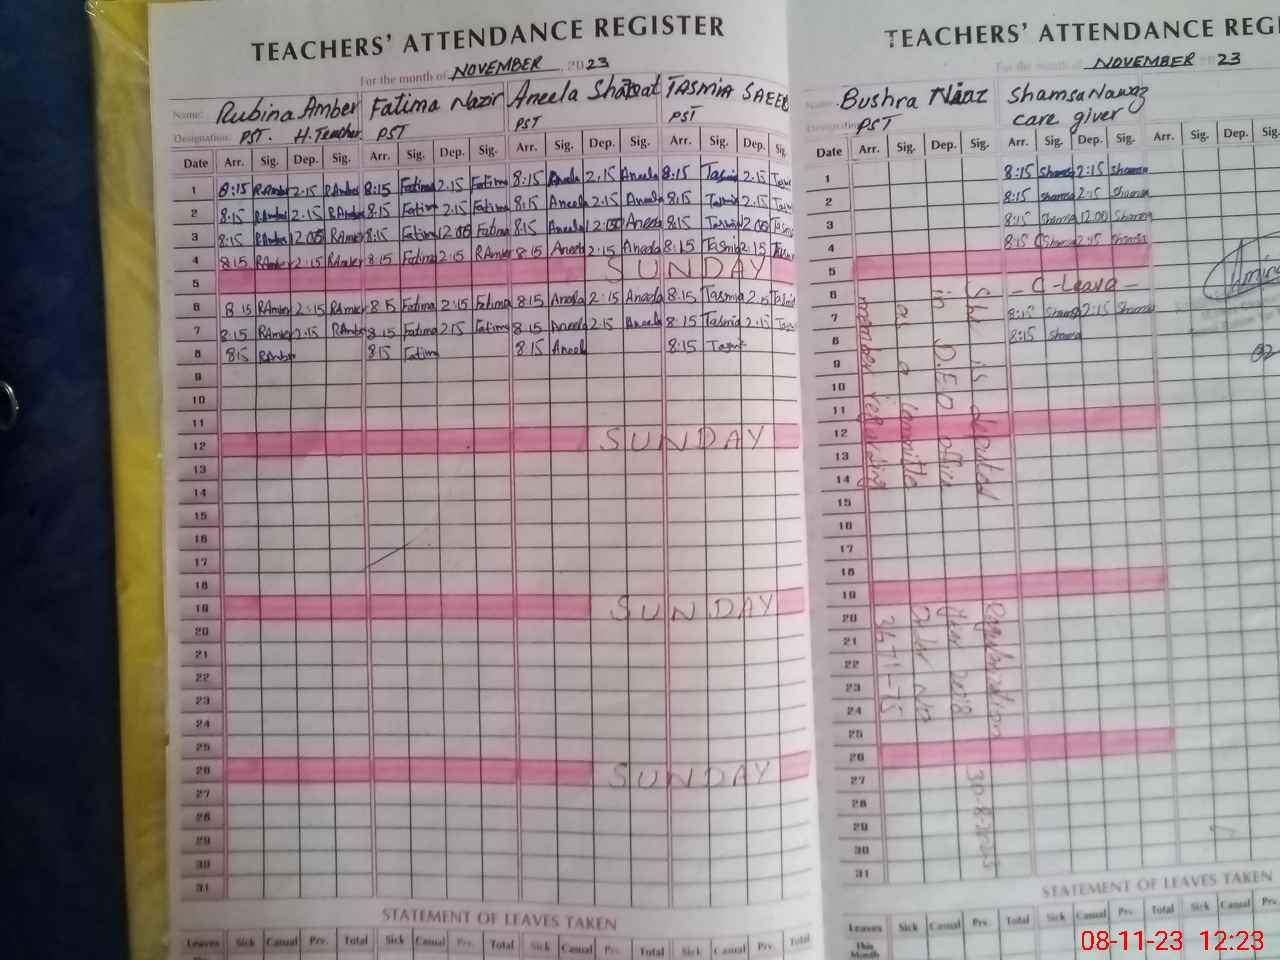 TEACHERS' ATTENDANCE REGISTER
For the month of NOVEMBER 2023
Name: Rubina Amber Fatima Nazir Aneela TASMIA SAEED
Designation: PST. H. Teacher PST PST PST
Date Arr. Sig. Dep. Sig. Arr. Sig. Dep. Sig. Arr. Sig. Dep. Sig. Arr. Sig. Dep. Sig.
1 8:15 RAmber 2:15 RAmber 8:15 Fatima 2:15 Fatima 8:15 Aneela 2:15 Aneela 8:15 Tasmia 2:15
2 8:15 RAmber 2:15 RAmber 8:15 Fatima 2:15 Fatima 8:15 Aneela 2:15 Aneela 8:15 Tasmia 2:15
3 8:15 RAmber 12:00 RAmber 8:15 Fatima 12:00 Fatima 8:15 Aneela 12:00 Aneela 8:15 Tasmia 12:00
4 8:15 RAmber 2:15 RAmber 8:15 Fatima 2:15 RAmber 8:15 Aneela 2:15 Aneela 8:15 Tasmia 2:15
5 SUNDAY
6 8:15 RAmber 2:15 RAmber 8:15 Fatima 2:15 Fatima 8:15 Aneela 2:15 Aneela 8:15 Tasmia 2:15 Tasmia
7 8:15 RAmber 2:15 RAmber 8:15 Fatima 2:15 Fatima 8:15 Aneela 2:15 Aneela 8:15 Tasmia 2:15
8 8:15 RAmber 8:15 Fatima 8:15 Aneela 8:15
9
10
11
12 SUNDAY
13
14
15
16
17
18
19 SUNDAY
20
21
22
23
24
25
26 SUNDAY
27
28
29
30
31
STATEMENT OF LEAVES TAKEN
Leaves Sick Casual Prv. Total Sick Casual Prv. Total Sick Casual Prv. Total Sick Casual Prv. Total
TEACHERS' ATTENDANCE REGI
For the month of NOVEMBER 2023
Name: Bushra Niaz Shamsa Nawaz
Designation PST care giver
Date Arr. Sig. Dep. Sig. Arr. Sig. Dep. Sig. Arr. Sig. Dep. Sig.
1 8:15 Shamsa 2:15 Shamsa
2 8:15 Shamsa 2:15 Shamsa
3 8:15 Shamsa 12:00 Shamsa
4 8:15 Shamsa 2:15 Shamsa
5
6 - C-Leave -
7 8:15 Shamsa 2:15 Shamsa
8 8:15 Shamsa
9
10
11
12
13
14
15
16
17
18
19
20
21
22
23
24
25
26
27
28
29
30
31
She is deputed
in D.E.O office
as a
member regarding
Regularization
Order No
STATEMENT OF LEAVES TAKEN
Leaves Sick Casual Prv. Total Sick Casual Prv. Total Sick Casual Prv.
This Month
08-11-23 12:23